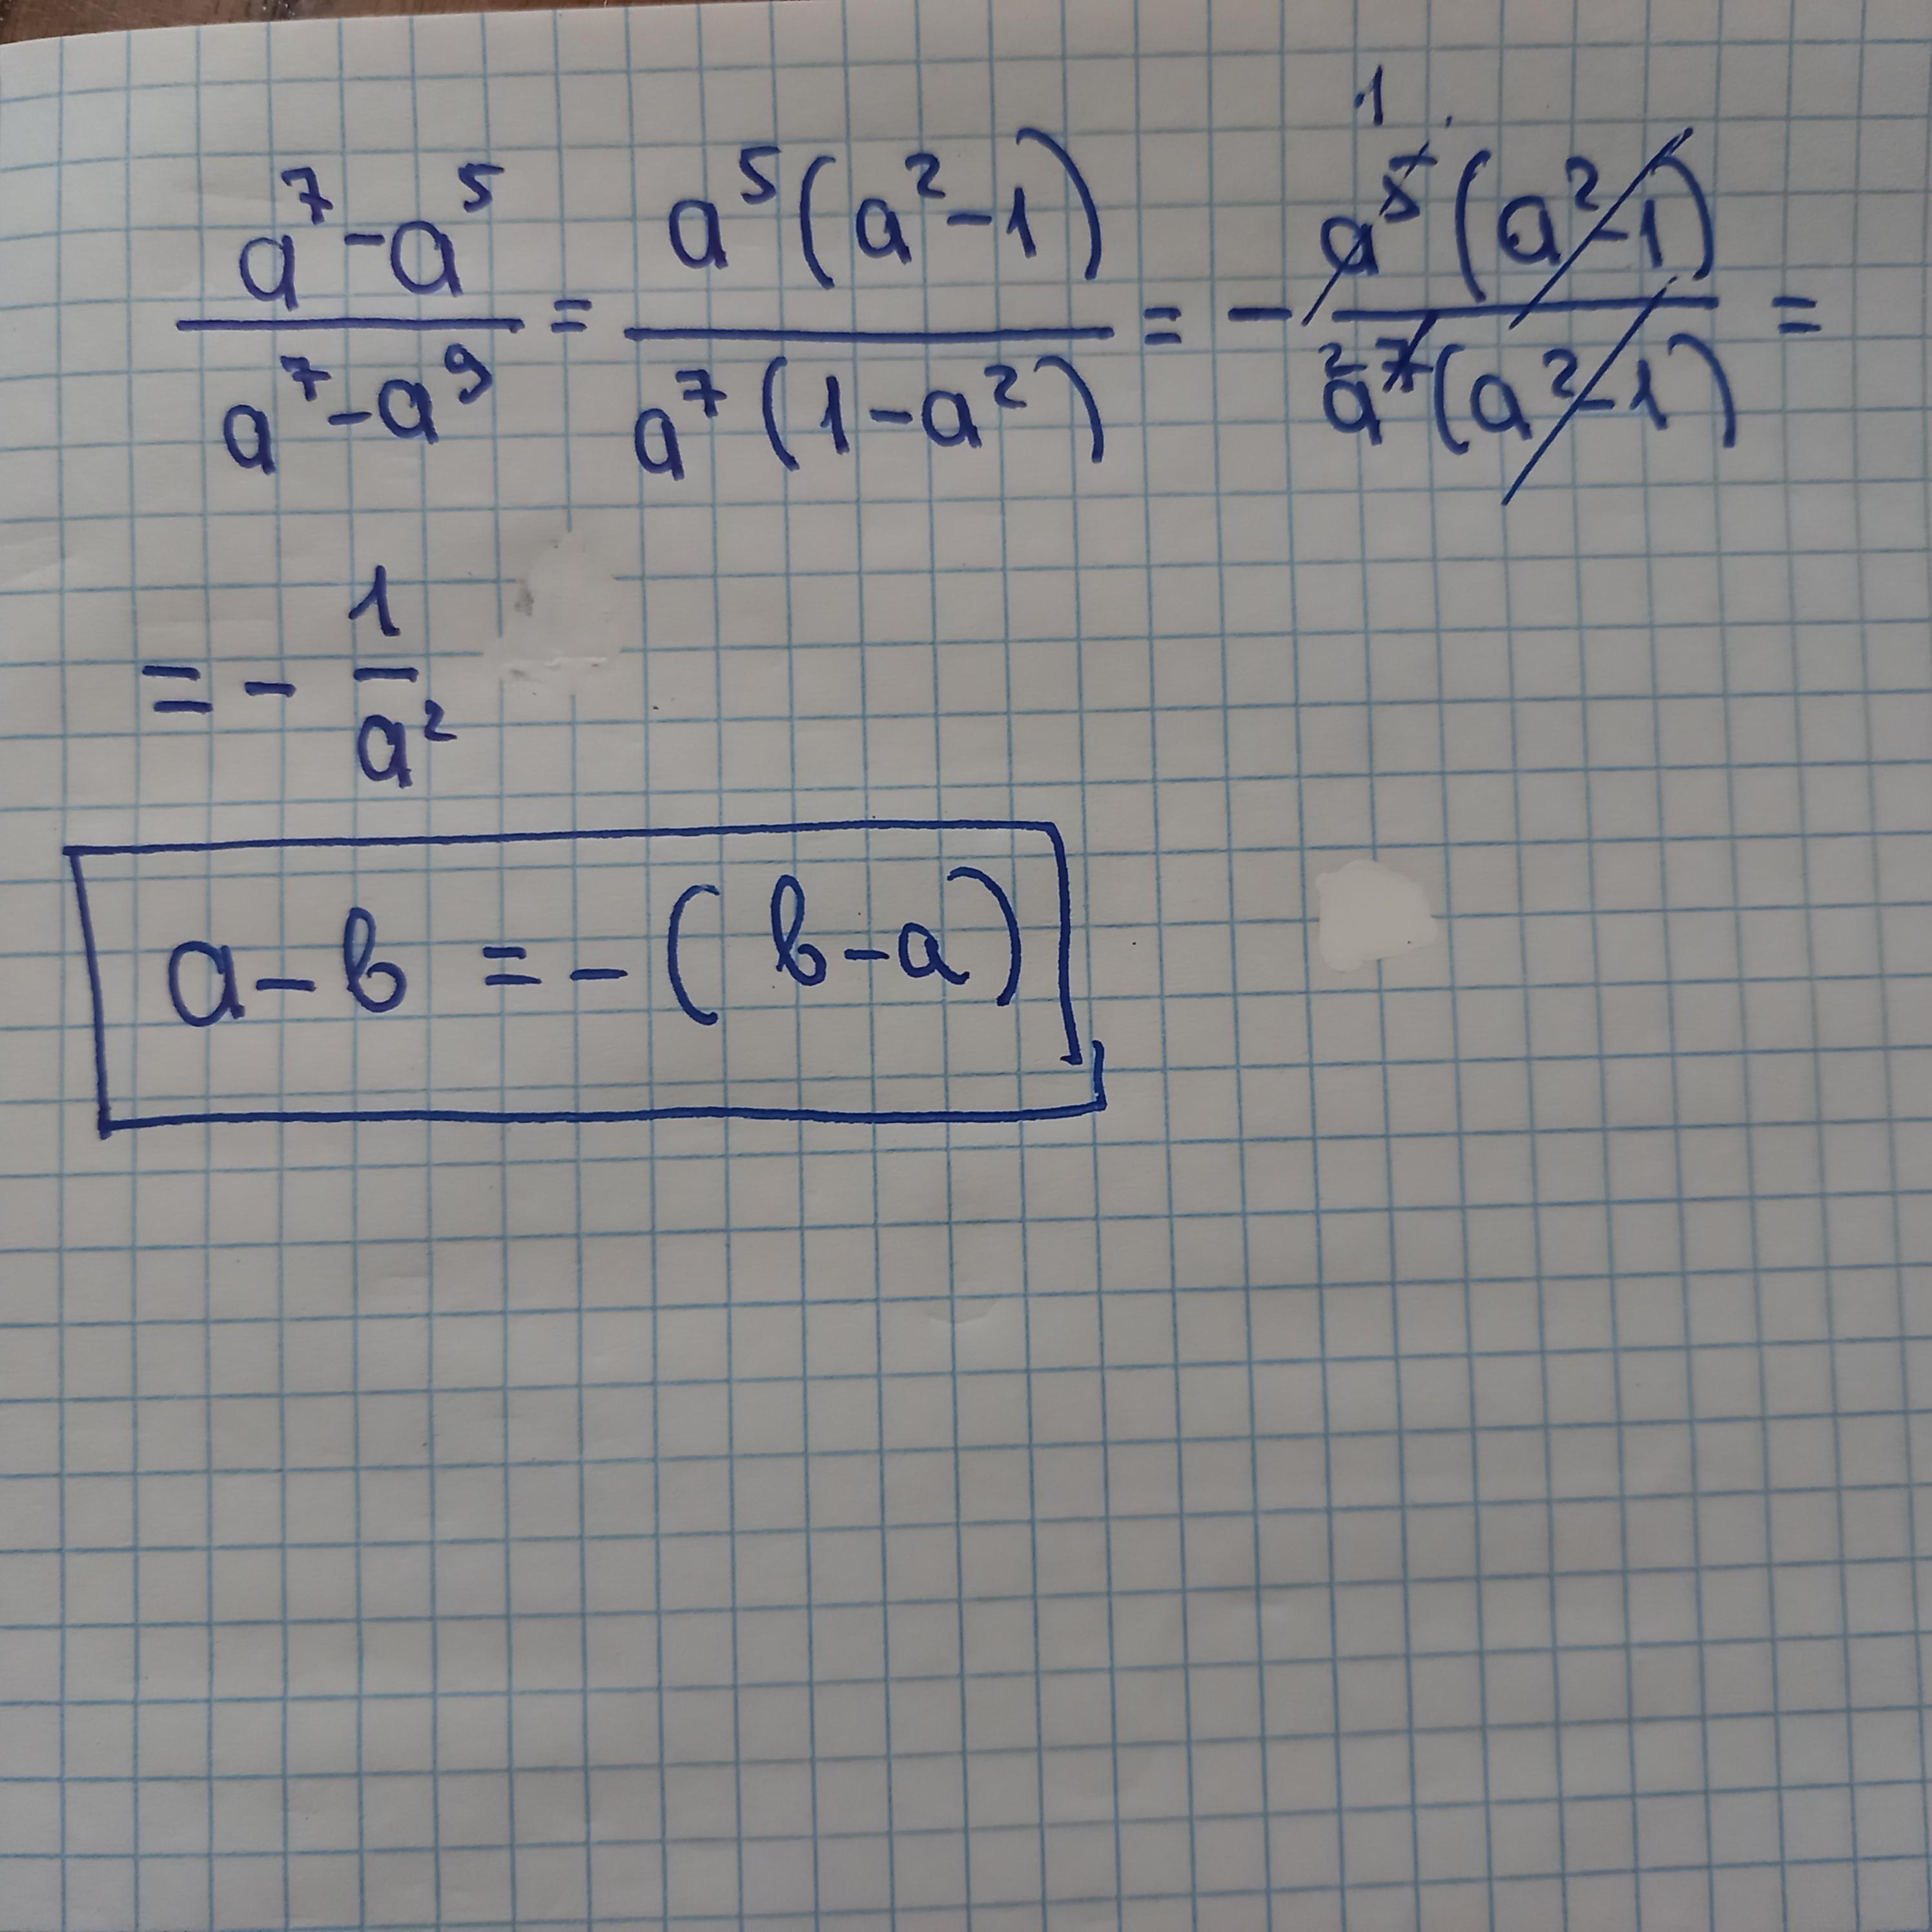 (a^7 - a^5)/(a^7 - a^9) = a^5(a^2 - 1)/(a^7(1 - a^2)) = - a^5(a^2 - 1)/(a^7(a^2 - 1)) =
= - 1/a^2
a - b = - (b - a)